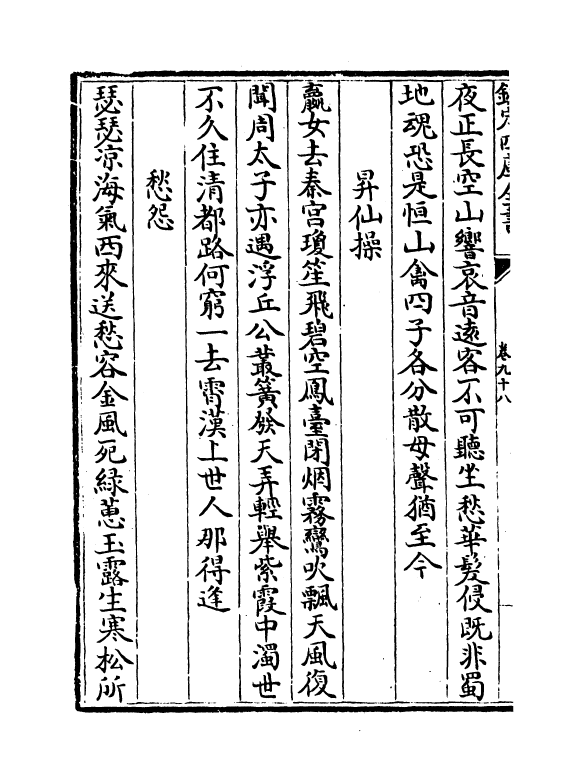 欽定四庫全書
卷九十八
夜正長空山響哀音遠客不可聽坐愁華髮侵既非蜀
地魂恐是恒山禽四子各分散母聲猶至今
昇仙操
嬴女去秦宫瓊笙飛碧空鳳臺閉烟霧鸞吹飄天風復
聞周太子亦遇浮丘公叢簧發天弄輕舉紫霞中濁世
不久住清都路何窮一去霄漢上世人那得逢
愁怨
瑟瑟凉海氣西來送愁容金風死綠蕙玉露生寒松所